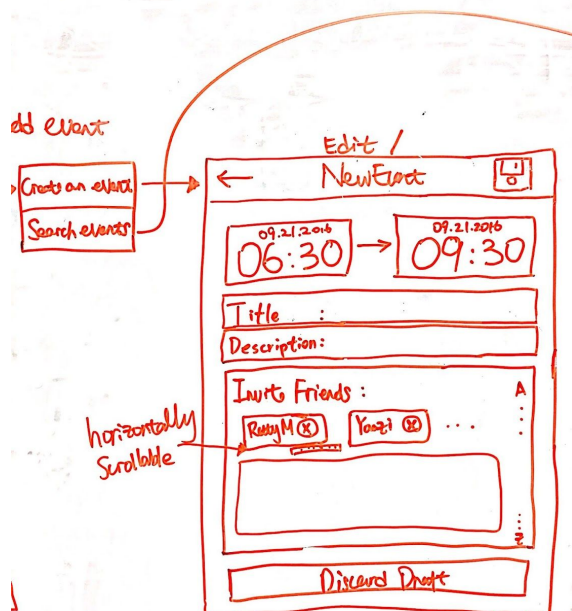 dd event
Create an event
Search events
Edit /
New Event
09.21.2016
06:30
09.21.2016
09:30
Title :
Description:
Invite Friends :
A
Yaozi
...
horizontally
Scrollable
z
Discard Draft